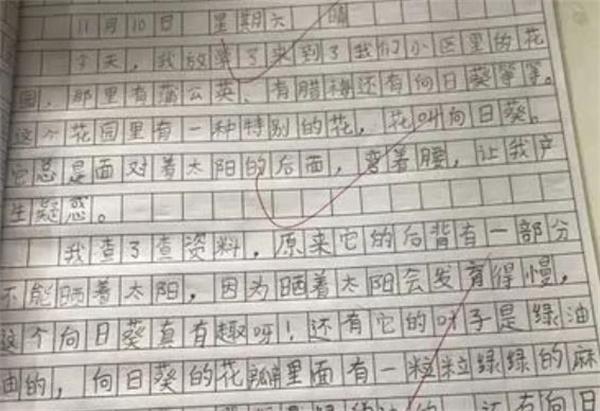 11月10日 星期六 晴
今天，我放学了来到了我们小区里的花
园，那里有蒲公英、有腊梅还有向日葵等等。
这个花园里有一种特别的花，花叫向日葵。
它总是面对着太阳的后面，弯着腰，让我产
生疑惑。
我查了查资料，原来它的后背有一部分
不能晒着太阳，因为晒着太阳会发育得慢，
这个向日葵真有趣呀！还有它的叶子是绿油
油的，向日葵的花瓣里面有一粒粒绿绿的麻
还有向日